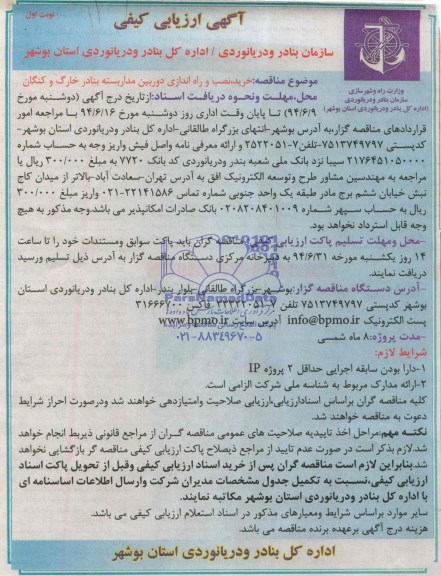 آگهی ارزیابی کیفی
نوبت اول
سازمان بنادر ودریانوردی / اداره کل بنادر ودریانوردی استان بوشهر
وزارت راه وشهرسازی
سازمان بنادر ودریانوردی
(اداره کل بنادر ودریانوردی استان بوشهر)
موضوع مناقصه:خرید،نصب و راه اندازی دوربین مداربسته بنادر خارگ و کنگان
محل،مهلت ونحوه دریافت اسناد:ازتاریخ درج آگهی (دوشنبه مورخ
۹۴/۶/۹) تا پایان وقت اداری روز دوشنبه مورخ ۹۴/۶/۱۶ با مراجعه امور
قراردادهای مناقصه گزار،به آدرس بوشهر-انتهای بزرگراه طالقانی-اداره کل بنادر ودریانوردی استان بوشهر-
کدپستی ۷۵۱۳۷۴۹۷۹۷-تلفن۷-۲۵۲۲۰۵۱ و ارائه معرفی نامه واصل فیش واریز وجه به حساب شماره
۲۱۷۶۴۵۱۰۵۰۰۰۰ سیبا نزد بانک ملی شعبه بندر ودریانوردی کد بانک ۷۷۲۰ به مبلغ ۳۰۰/۰۰۰ ریال یا
مراجعه به مهندسین مشاور طرح وتوسعه الکترونیک افق به آدرس تهران-سعادت آباد-بالاتر از میدان کاج
نبش خیابان ششم برج مادر طبقه یک واحد جنوبی شماره تماس ۲۲۱۴۱۵۸۶-۰۲۱ واریز مبلغ ۳۰۰/۰۰۰
ریال به حساب سپهر شماره ۰۲۰۸۲۰۸۴۰۱۰۰۹ بانک صادرات امکانپذیر می باشد.وجه مذکور به هیچ
وجه قابل استرداد نخواهد بود.
-محل ومهلت تسلیم پاکت ارزیابی کیفی: مناقصه گران باید پاکت سوابق ومستندات خود را تا ساعت
۱۴ روز یکشنبه مورخه ۹۴/۶/۳۱ به دبیرخانه مرکزی دستگاه مناقصه گزار به آدرس ذیل تسلیم ورسید
دریافت نمایند.
-آدرس دستگاه مناقصه گزار:بوشهر-بزرگراه طالقانی-بلوار بندر-اداره کل بنادر ودریانوردی استان
بوشهر کدپستی ۷۵۱۳۷۴۹۷۹۷ تلفن ۷-۳۳۳۲۲۰۵۱ فاکس ۳۱۶۶۶۷۰۰
پست الکترونیک info@bpmo.ir آدرس سایت www.bpmo.ir
ParsNamadData
۰۲۱-۸۸۳۴۹۶۷۰-۵
-مدت پروژه:۸ ماه شمسی
شرایط لازم:
۱-دارا بودن سابقه اجرایی حداقل ۲ پروژه IP
۲-ارائه مدارک مربوط به شناسه ملی شرکت الزامی است.
کلیه مناقصه گران براساس اسنادارزیابی،ارزیابی صلاحیت وامتیازدهی خواهند شد ودرصورت احراز شرایط
دعوت به مناقصه خواهند شد.
نکته مهم:مراحل اخذ تاییدیه صلاحیت های عمومی مناقصه گران از مراجع قانونی ذیربط انجام خواهد
شد.لازم بذکر است در صورت عدم تایید از مراجع ذیصلاح پاکت ارزیابی کیفی مناقصه گر بازگشایی نخواهد
شد.بنابراین لازم است مناقصه گران پس از خرید اسناد ارزیابی کیفی وقبل از تحویل پاکت اسناد
ارزیابی کیفی،نسبت به تکمیل جدول مشخصات مدیران شرکت وارسال اطلاعات اساسنامه ای
با اداره کل بنادر ودریانوردی استان بوشهر مکاتبه نمایند.
سایر موارد براساس شرایط ومعیارهای مذکور در اسناد استعلام ارزیابی کیفی می باشد.
هزینه درج آگهی برعهده برنده مناقصه می باشد.
اداره کل بنادر ودریانوردی استان بوشهر